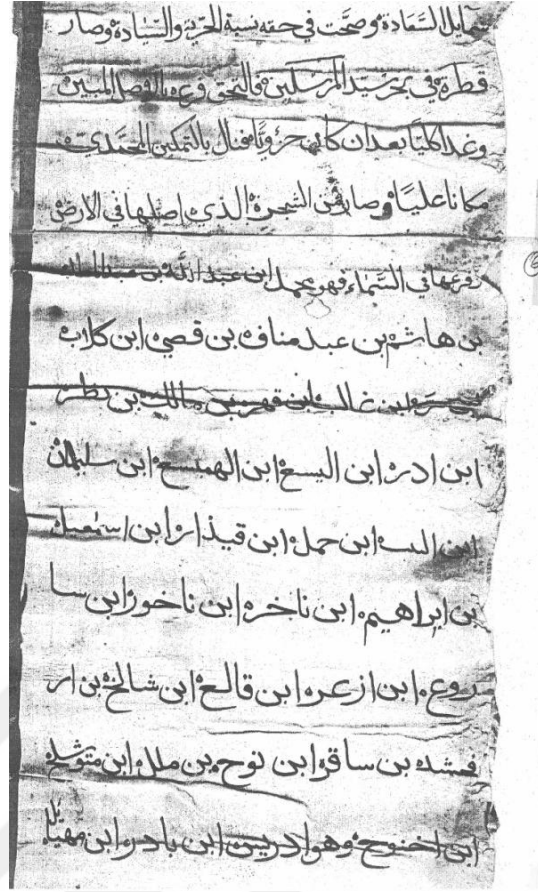 شمايل السّعادة وصحّت في حقه نسبة الحرّية والسّيادة وصار
قطرة في بحر سيد المرسلين والتحق فرعه بالاصل المبين
وغدا كليا بعد ان كان جزويّا فنال بالتمكين المحمّدي
مكانا عليّا وصار من الشجرة الذي اصلها في الارض
وفرعها في السّماء فهو محمد ابن عبد الله بن عبد المطلب
بن هاشم بن عبد مناف بن قصي ابن كلاب
بن مرة بن غالب ابن فهر بن مالك بن نظر
ابن ادره ابن اليسع ابن الهميسع ابن سليمان
ابن النبت ابن حمل ابن قيذار ابن اسمعيل
بن ابراهيم ابن ناخره ابن ناخور ابن سا
روع ابن ازعره ابن قالع ابن شالخ بن ار
فحشده بن ساقر ابن نوح بن ملك ابن متوشله
ابن اخنوخ وهو ادريس ابن يادره ابن مهيال